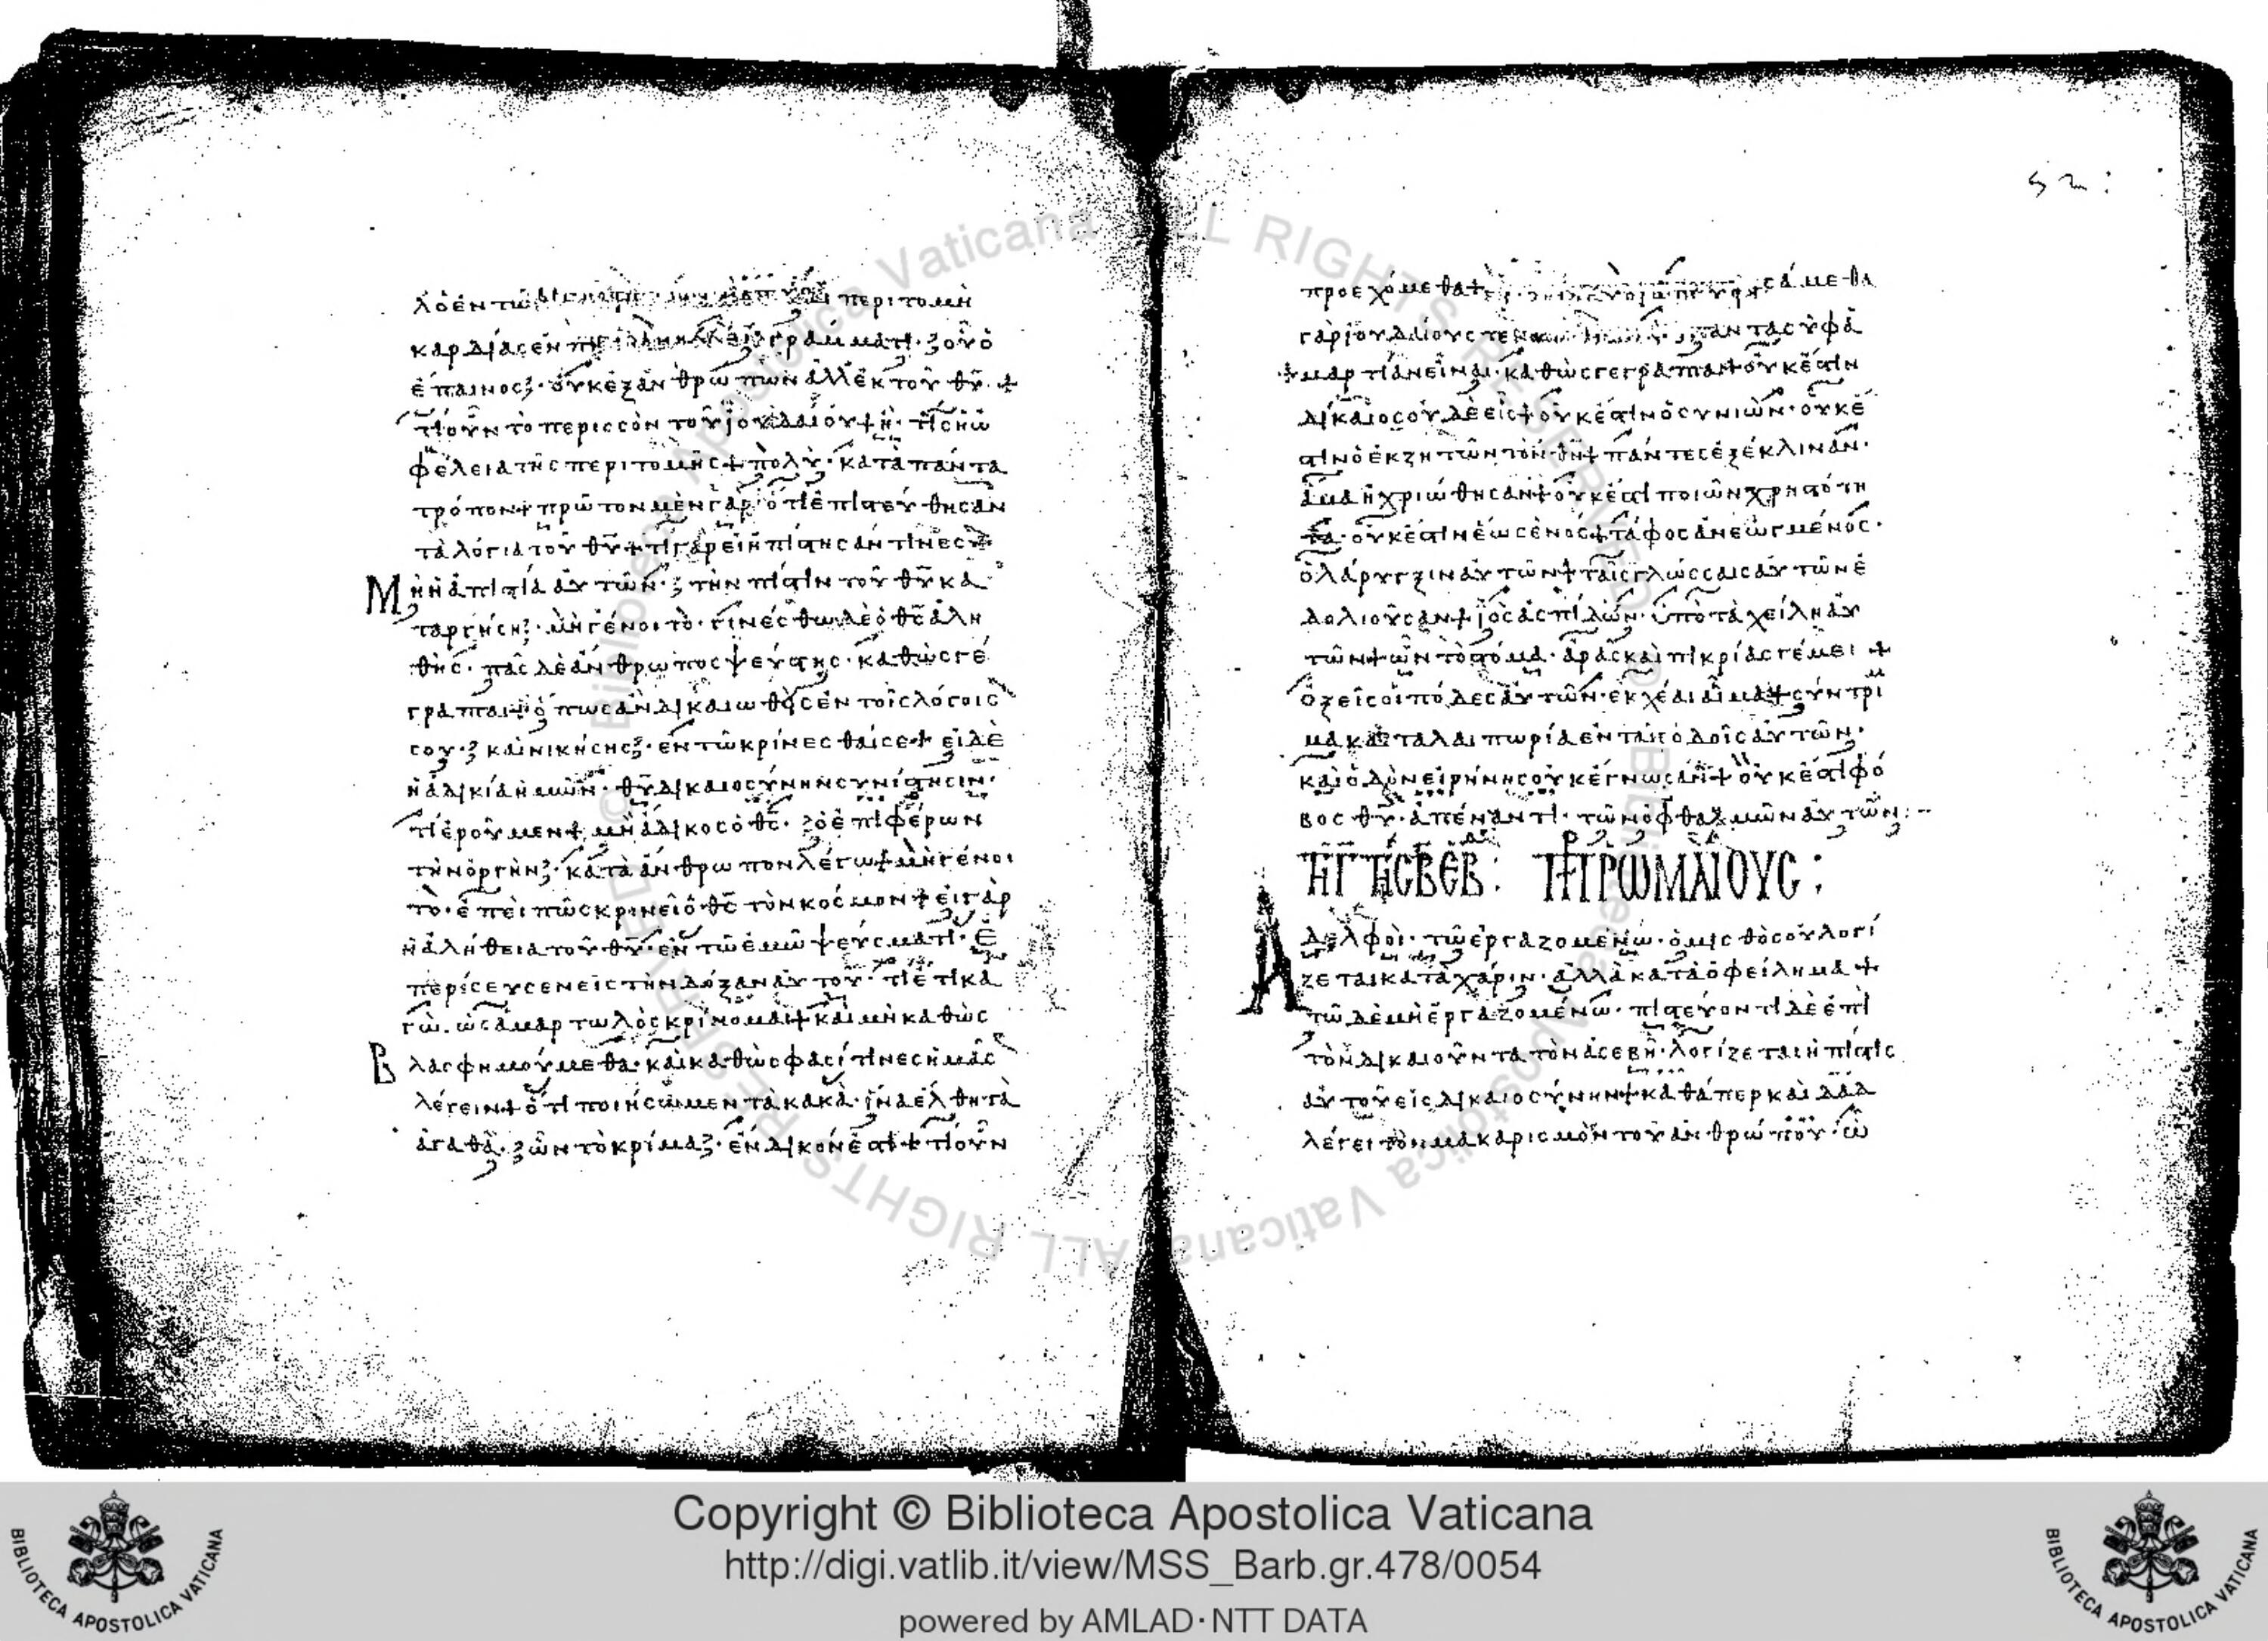 λοεντω περιτομὴ
καρδίας ἐν πνι οὐ γράμματι· ζού ὁ
ἔπαινος· οὐκ ἐξ ἀνθρώπων ἀλλ ἐκ τοῦ θυ· +
τί οὖν τὸ περισσὸν τοῦ ἰουδαίου + ἢ· τίς ἡ ὠ
φέλεια τῆς περιτομῆς + πολὺ· κατὰ πάντα
τρόπον + πρῶτον μὲν γὰρ ὅτι ἐπιστεύθησαν
τὰ λόγια τοῦ θυ + τί γὰρ εἰ ἠπίστησάν τινες
Μὴ ἡ ἀπιστία αὐτῶν· τὴν πίστιν τοῦ θυ κα
ταργήσῃ· μὴ γένοιτο· γινέσθω δὲ ὁ θς ἀλη
θής· πᾶς δὲ ἄνθρωπος ψεύστης· καθὼς γέ
γραπται + ὅπως ἂν δικαιωθῇς ἐν τοῖς λόγοις
σου· καὶ νικήσῃς· ἐν τῶ κρίνεσθαί σε + εἰ δὲ
ἡ ἀδικία ἡμῶν· θυ δικαιοσύνην συνίστησιν·
τί ἐροῦμεν + μὴ ἄδικος ὁ θς· ὁ ἐπιφέρων
τὴν ὀργὴν· κατὰ ἄνθρωπον λέγω + μὴ γένοι
το· ἐπεὶ πῶς κρινεῖ ὁ θς τὸν κόσμον + εἰ γὰρ
ἡ ἀλήθεια τοῦ θυ· ἐν τῶ ἐμῶ ψεύσματι· ἐ
περίσευσεν εἰς τὴν δόξαν αὐτοῦ· τί ἔτι κα
γὼ· ὡς ἁμαρτωλὸς κρίνομαι + καὶ μὴ καθὼς
Βλασφημούμεθα· καὶ καθὼς φασί τινες ἡμᾶς
λέγειν + ὅτι ποιήσωμεν τὰ κακὰ· ἵνα ἔλθη τὰ
ἀγαθὰ· ὧν τὸ κρίμα· ἔνδικόν ἐστι + τί οὖν
52:
προεχόμεθα σάμεθα
γὰρ ἰουδαίους τε πάντας ὑφ ἁ
μαρτίαν εἶναι· καθὼς γέγραπται + οὐκ ἔστιν
δίκαιος οὐδὲ εἷς + οὐκ ἔστιν ὁ συνιῶν· οὐκ ἔ
στιν ὁ ἐκζητῶν τὸν θν + πάντες ἐξέκλιναν·
ἅμα ἠχριώθησαν + οὐκ ἔστι ποιῶν χρηστότη
τα· οὐκ ἔστιν ἕως ἑνός + τάφος ἀνεωγμένος·
ὁ λάρυγξ ἱν αὐτῶν + ταῖς γλώσσαις αὐτῶν ἐ
δολιοῦσαν + ἰὸς ἀσπίδων· ὑπὸ τὰ χείλη αὐ
τῶν + ὧν τὸ στόμα· ἀρᾶς καὶ πικρίας γέμει +
Ὀξεῖς οἱ πόδες αὐτῶν· ἐκχέαι αἷμα + σύντριμ
μα καὶ ταλαιπωρία ἐν ταῖς ὁδοῖς αὐτῶν·
καὶ ὁδὸν εἰρήνης οὐκ ἔγνωσαν + οὐκ ἔστι φό
βος θυ· ἀπέναντι· τῶν ὀφθαλμῶν αὐτῶν:–
ΤΗ Γ ΤΗΣ Β ΕΒ: ΠΡ ΡΩΜΑΙΟΥΣ:
Ἀδελφοὶ· τῶ ἐργαζομένω· ὁ μισθὸς οὐ λογί
ζεται κατὰ χάριν· ἀλλὰ κατὰ ὀφείλημα +
τῶ δὲ μὴ ἐργαζομένω· πιστεύοντι δὲ ἐπὶ
τὸν δικαιοῦντα τὸν ἀσεβῆ· λογίζεται ἡ πίστις
αὐτοῦ εἰς δικαιοσύνην + καθάπερ καὶ δαδ
λέγει τὸν μακαρισμὸν τοῦ ἀνθρώπου· ὧ
Copyright © Biblioteca Apostolica Vaticana
http://digi.vatlib.it/view/MSS_Barb.gr.478/0054
powered by AMLAD·NTT DATA
BIBLIOTECA APOSTOLICA VATICANA
BIBLIOTECA APOSTOLICA VATICANA